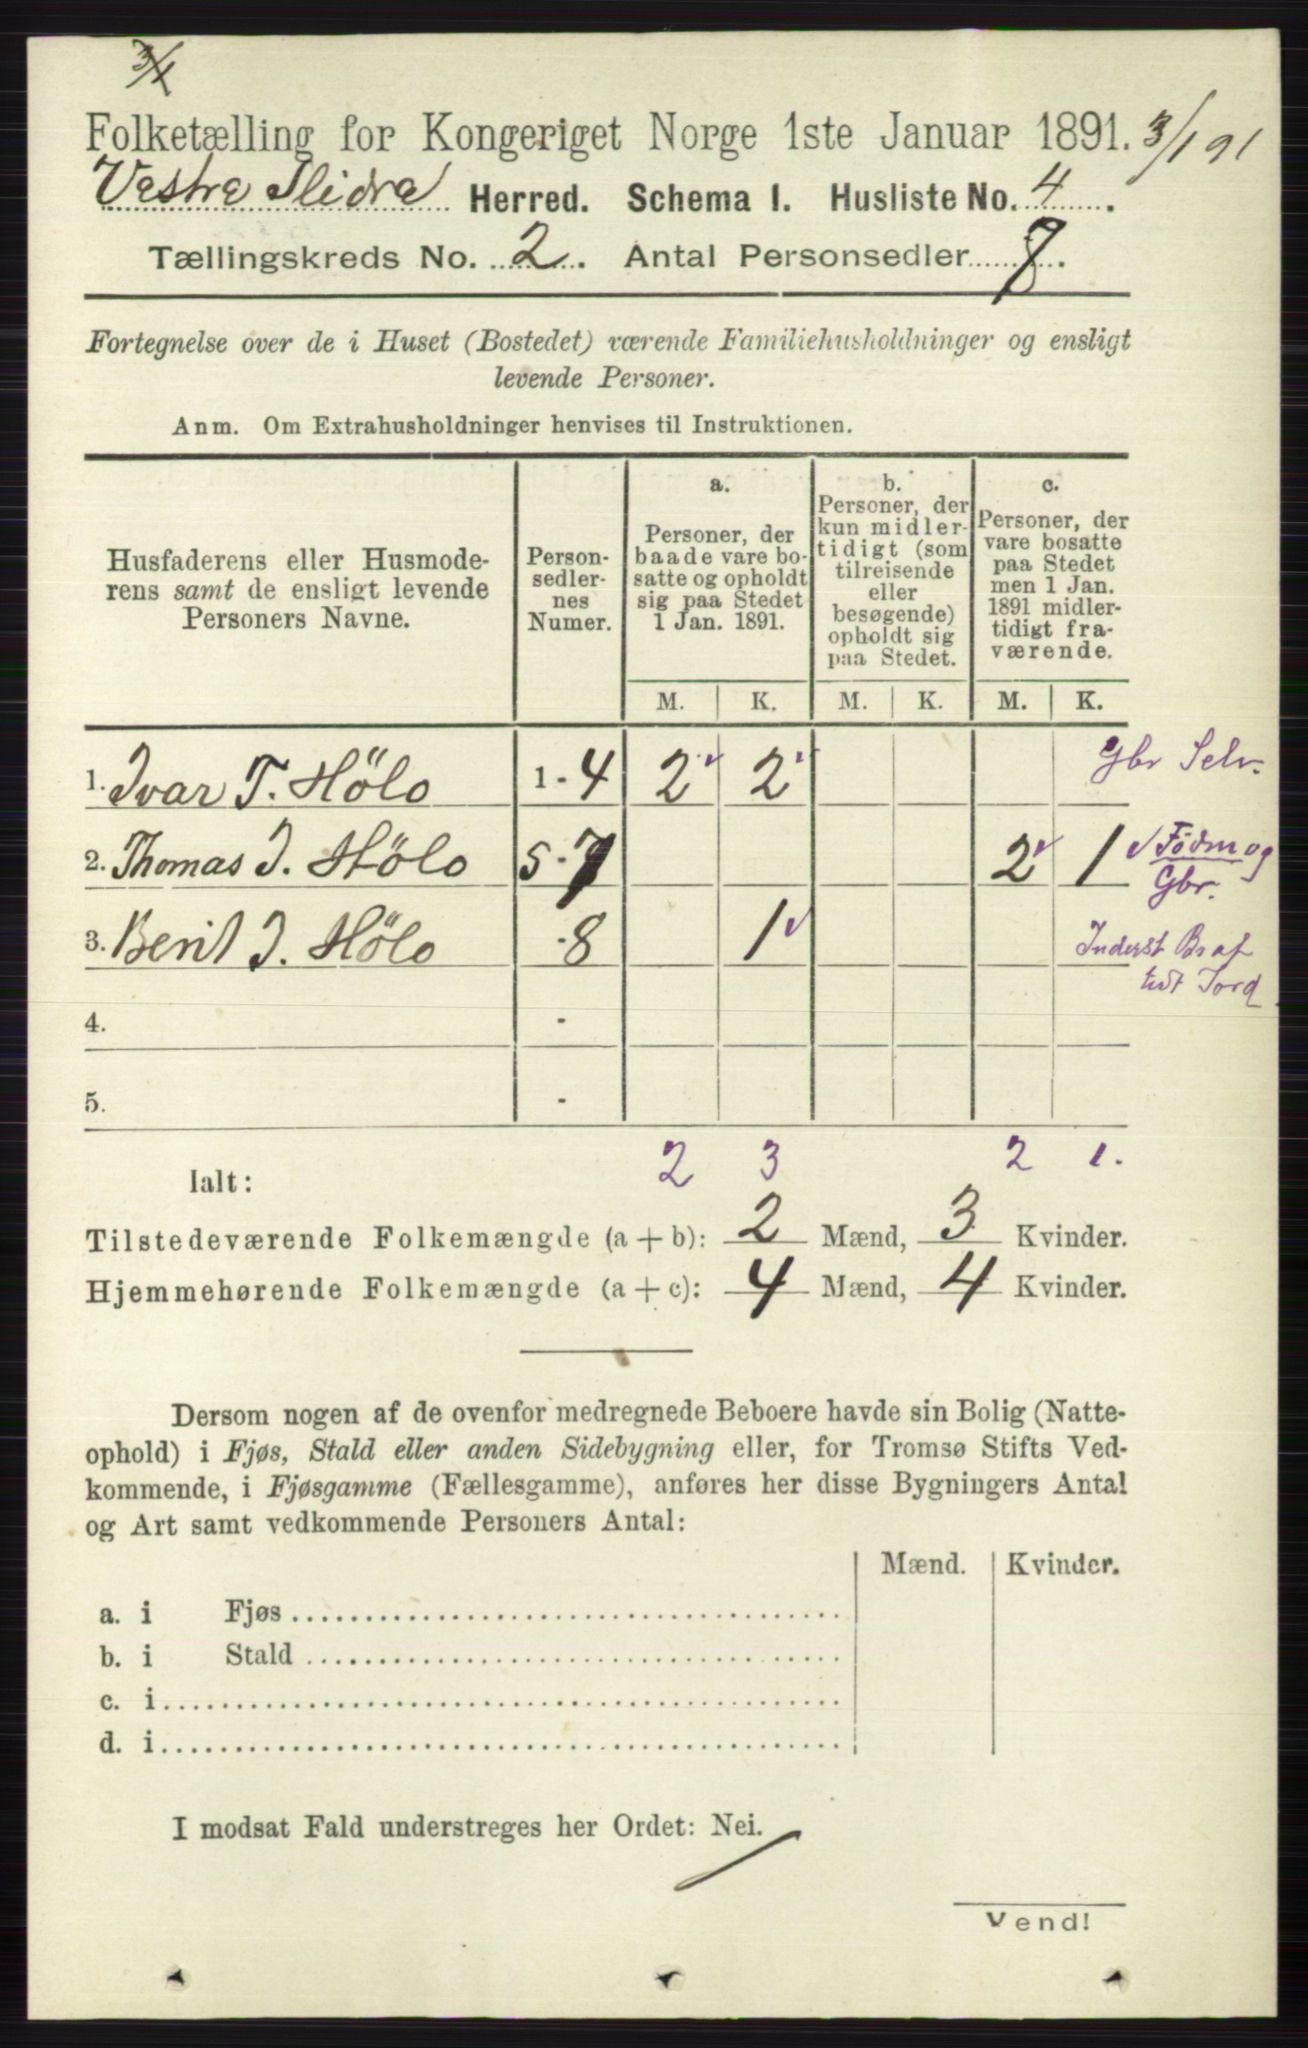 3/1
Folketælling for Kongeriget Norge 1ste Januar 1891. 3/1 91
Vestre Slidre Herred. Schema I. Husliste No. 4.
Tællingskreds No. 2. Antal Personsedler 7.
Fortegnelse over de i Huset (Bostedet) værende Familiehusholdninger og ensligt
levende Personer.
Anm. Om Extrahusholdninger henvises til Instruktionen.
Husfaderens eller Husmode-
rens samt de ensligt levende
Personers Navne.
Person-
sedler-
nes
Numer.
a.
Personer, der
baade vare bo-
satte og opholdt
sig paa Stedet
1 Jan. 1891.
b.
Personer, der
kun midler-
tidigt (som
tilreisende
eller
besøgende)
opholdt sig
paa Stedet.
c.
Personer, der
vare bosatte
paa Stedet
men 1 Jan.
1891 midler-
tidigt fra-
værende.
M. K. M. K. M. K.
1. Ivar T. Hölo 1 - 4 2 2 Gbr Selv.
2. Thomas I. Hölo 5 - 7 2 1 Födm og
Gbr.
3. Berit I. Hölo - 8 1 Inderst Br af
tidt Jord
4. -
5. -
Ialt: 2 3 2 1.
Tilstedeværende Folkemængde (a + b): 2 Mænd, 3 Kvinder.
Hjemmehørende Folkemængde (a + c): 4 Mænd, 4 Kvinder.
Dersom nogen af de ovenfor medregnede Beboere havde sin Bolig (Natte-
ophold) i Fjøs, Stald eller anden Sidebygning eller, for Tromsø Stifts Ved-
kommende, i Fjøsgamme (Fællesgamme), anføres her disse Bygningers Antal
og Art samt vedkommende Personers Antal:
Mænd. Kvinder.
a. i Fjøs
b. i Stald
c. i
d. i
I modsat Fald understreges her Ordet: Nei.
Vend!